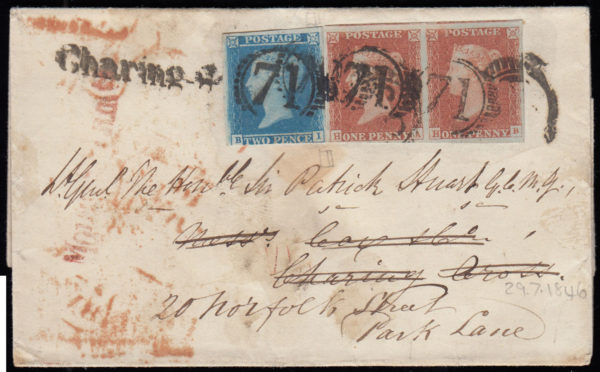 POSTAGE POSTAGE POSTAGE
Charing +
71 71 71
B I H A H B
TWO PENCE ONE PENNY ONE PENNY
Lt. Genl The Honble Sir Patrick Stuart G.C.M.G.,
Messrs Cox & Co.
Charing Cross.
29.7.1846
20 Norfolk Street
Park Lane